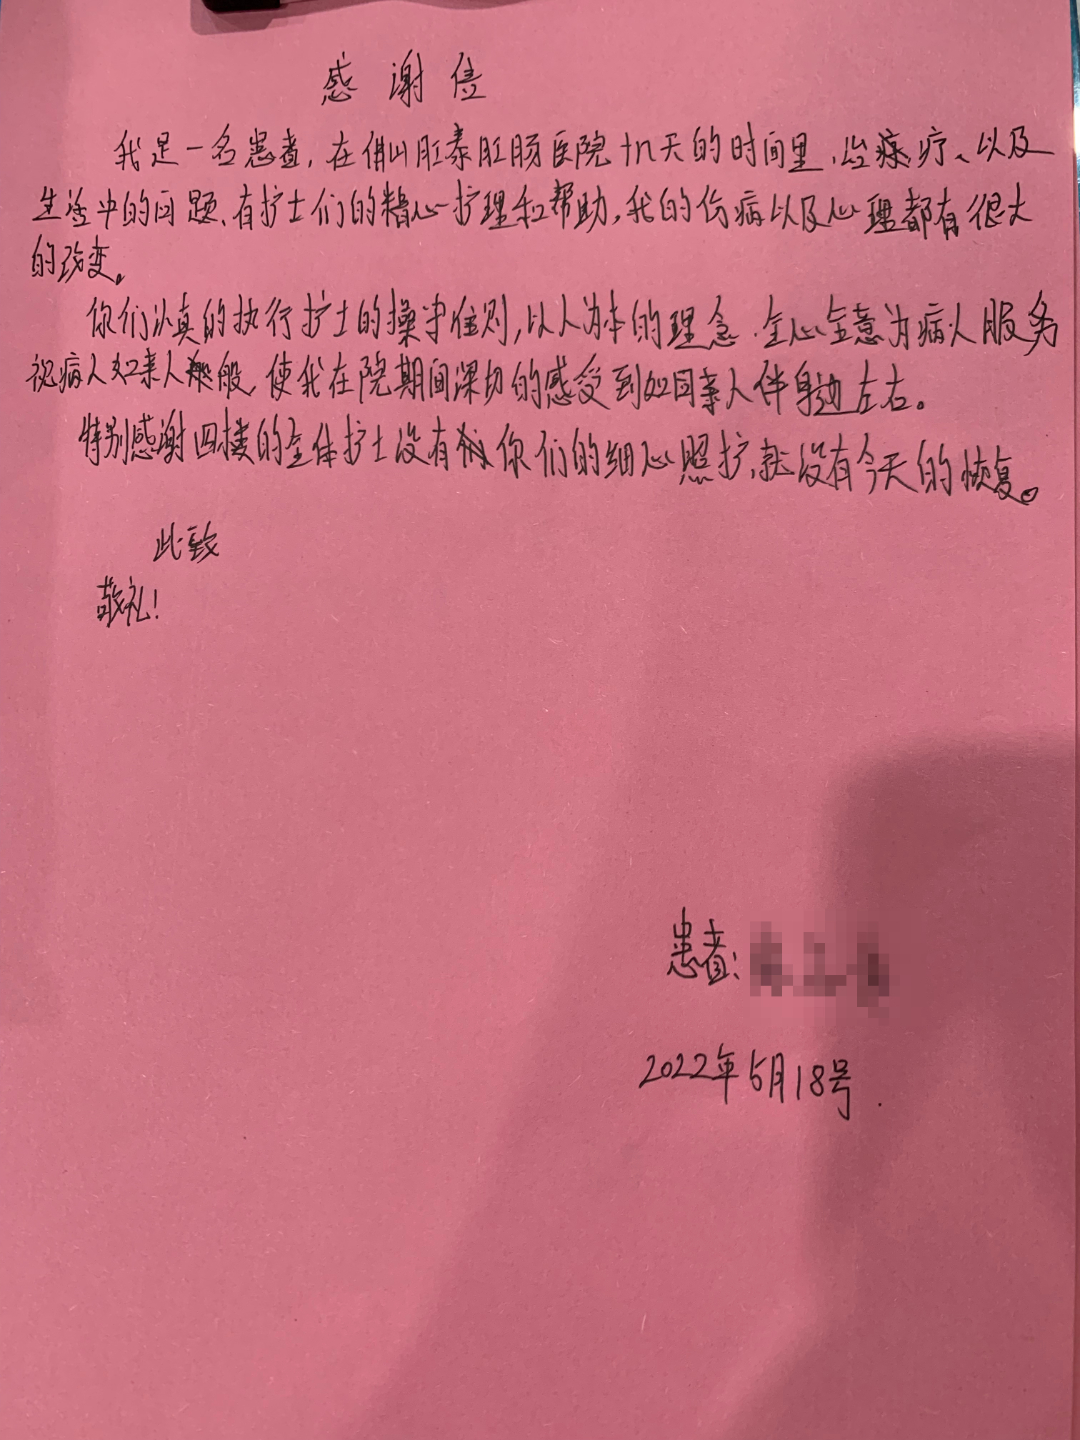 感谢信
我是一名患者，在佛山肛泰肛肠医院十几天的时间里，治疗、以及
生活中的问题、有护士们的精心护理和帮助，我的伤病以及心理都有很大
的改变。
你们认真的执行护士的操守准则，以人为本的理念，全心全意为病人服务
视病人如亲人般，使我在院期间深切的感受到如同亲人伴身边左右。
特别感谢四楼的全体护士没有你们的细心照护，就没有今天的恢复。
此致
敬礼！
患者：
2022年5月18号.